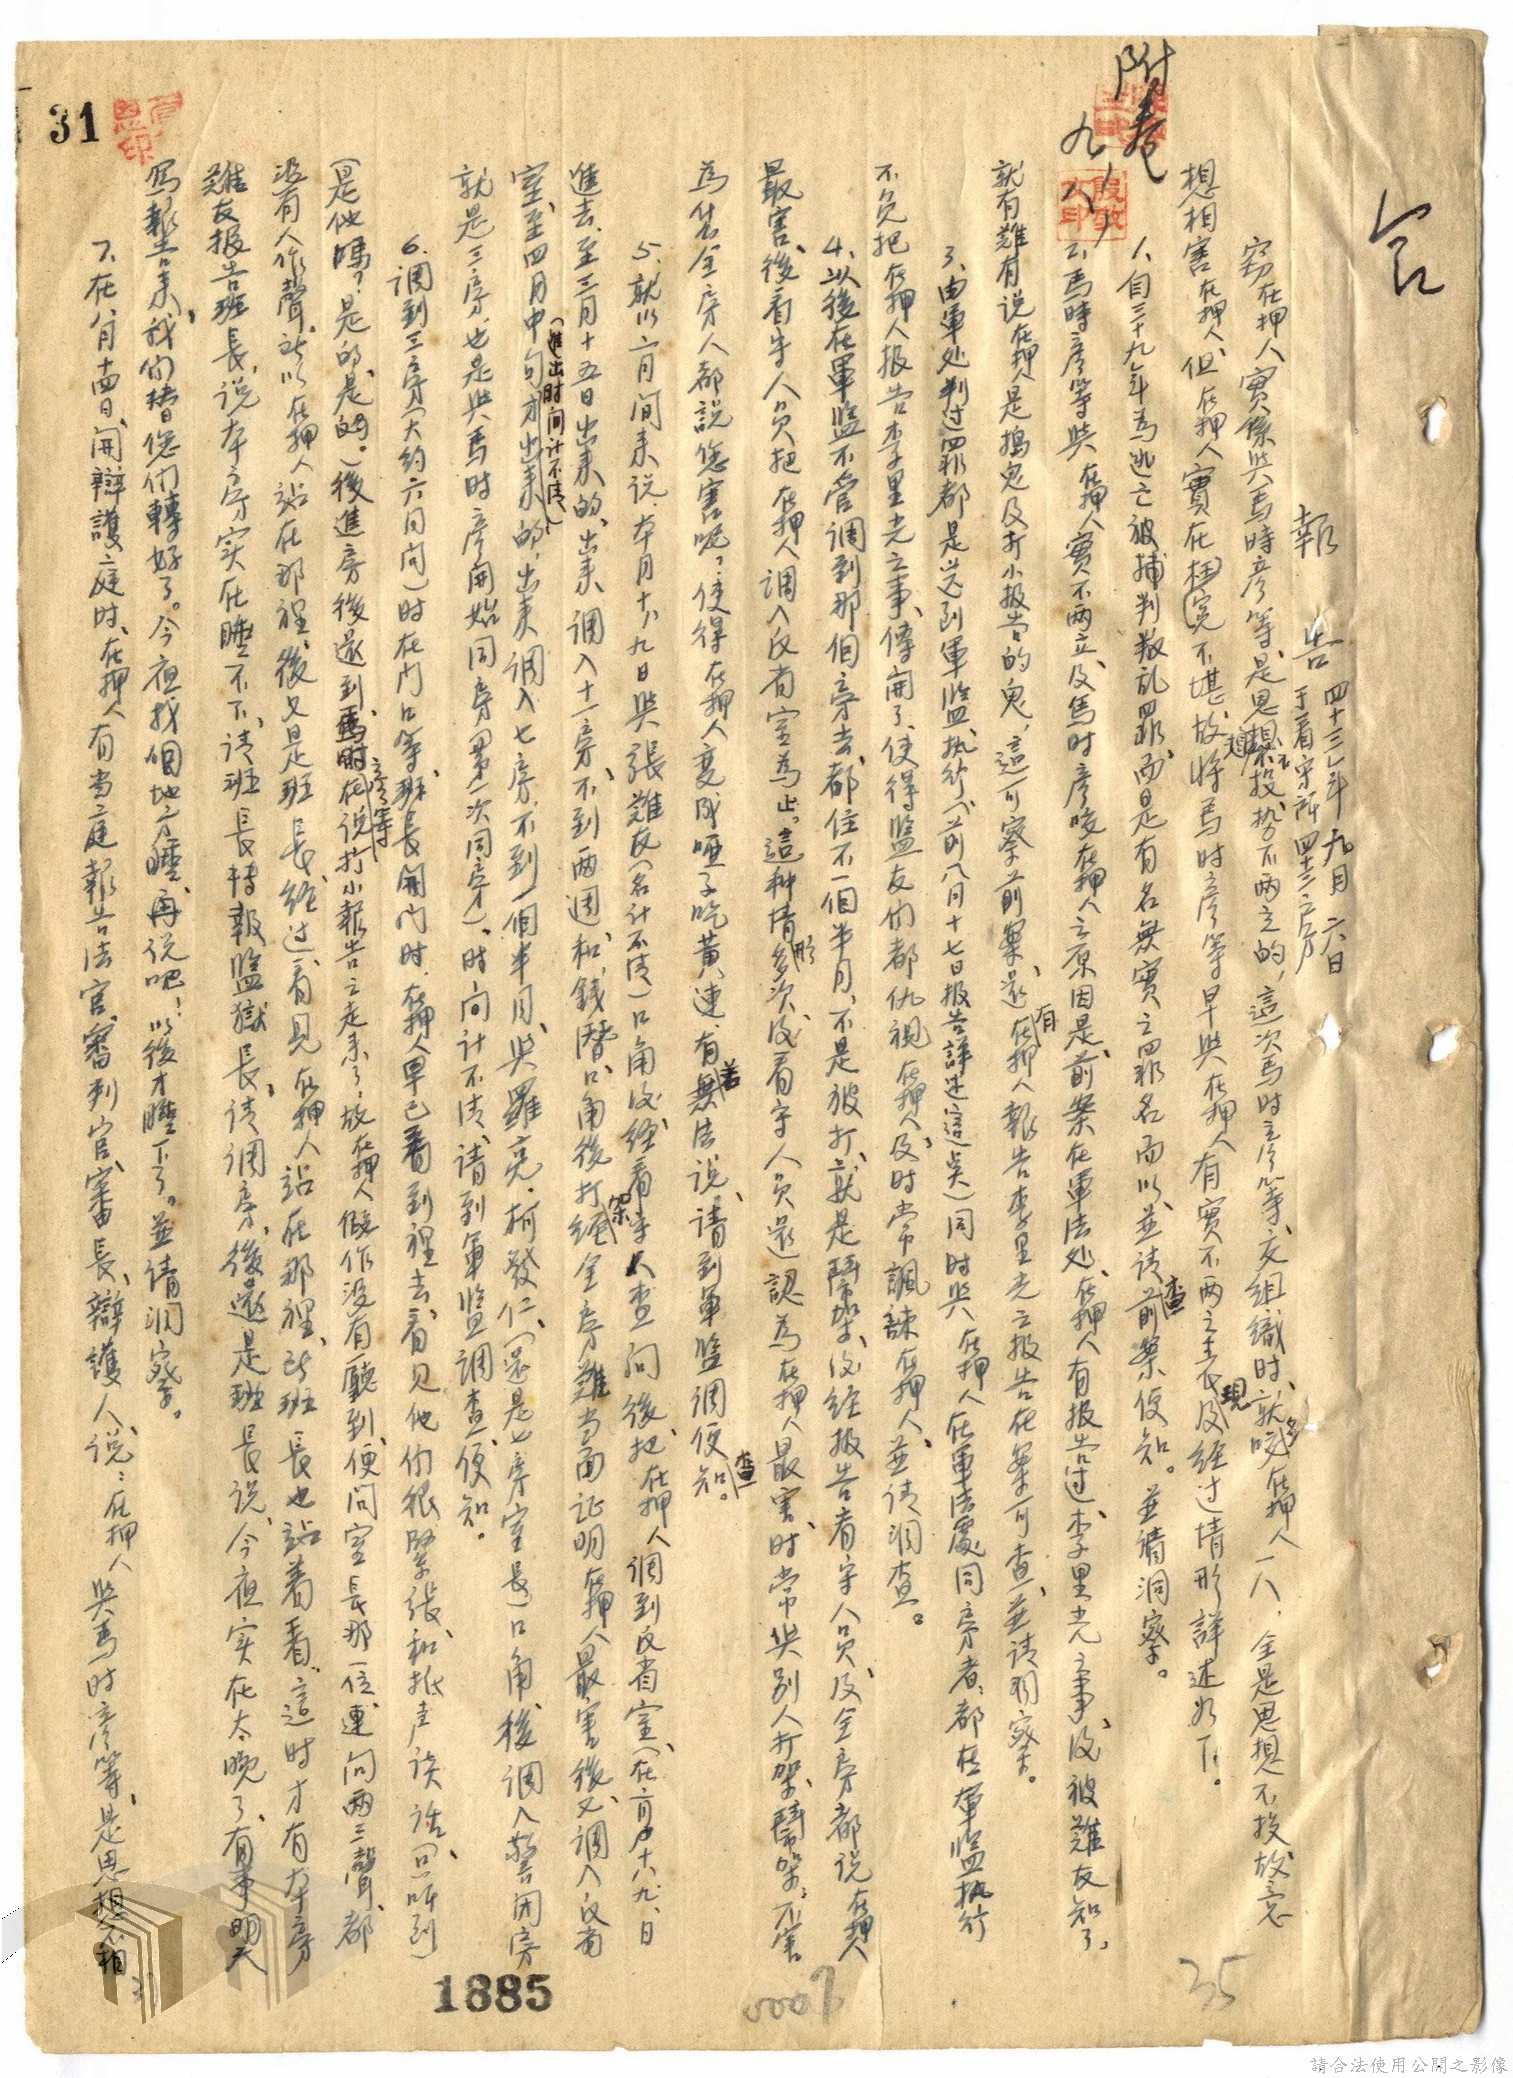 附卷
九、八、
31
報告 四十三年九月六日
于看守所四十三房
竊在押人實係與馬時彥等、是思想不投勢不兩立的，這次馬时彥等、文組織时、就咬在押人一人，全是思想不投故意
想相害在押人、但在押人實在枉冤不堪、故將馬时彥等早與在押人有實不两立表現及经过情形詳述如下。
1、自三十九年為逃亡被捕判叛乱罪、而是有名無實之罪名、而以、並請查前案便知。並請洞察。
2、馬時彥等與在押人實不兩立、及馬时彥咬在押人之原因是、前案在軍法处、在押人有报告过、李里光之事、後被難友知了、
就有難有说在押人是搗鬼及打小报告的鬼，這可察前案、还有在押人報告李里光之报告在案可查、並请明察。
3、由軍处判过罪都是送到軍监执行(前八月十七日报告詳述這点)同时與在押人在軍法處同房者、都在軍监执行
不免把在押人报告李里光之事、傳開了、使得监友們都仇視在押人、及时常諷諫在押人、並请洞查。
4、以後在軍监不管調到那個房去、都住不一個半月、不是被打、就是鬧架、後经报告看守人員及全房都说在押人
最害、後看守人員把在押人調入反省室為止。這种情形多次、後看守人員還認為在押人最害、时常與別人打架、鬧架、不害
為甚全房人都說您害呢？使得在押人变成啞子吃黃連、有苦無法说、請到軍监調查便知。
5、就以二月间来说、本月十八、九日與張難友(名计不清)口角後经看守人查问後、把在押人调到反省室、(在二月十八、九、日
進去、至三月十五日出来的、出来調入十一房、不到两週、和錢潛口角後打架經全房難当面证明在押人最害後、又調入反省
室、至四月中旬才出来的(進出时间计不清)、出来調入七房、不到一個半月、與羅亮、柯發仁、(还是七房室長)口角、後調入警闭房
就是三房、也是與馬时彥開始同房(第一次同房)。时间计不清、请到軍监調查便知。
6、调到三房(大约六月间)时在门口等班長開门时、在押人早已看到裡去、看见他們很緊張、和抵声谈話、(只听到)
(是他嗎？是的、是的。)後進房後還到馬时彥等在说打小報告之走来了、故在押人做作没有聽到、便问室長那一位、連问两三聲、都
没有人作聲、所以在押人站在那裡、後又是班長、经过看見在押人站在那裡、所班長也站着看、這时才有本房
難友报告班長、说本房实在睡不下、请班長轉報监獄長、请调房、後還是班長说、今夜实在太晚了、有事明天
寫報告来、我們替您們轉好了。今夜找個地方睡、再说吧！以後才睡下了。並请洞察。
7、在八月十四日、開辯護庭时、在押人有当庭報告法官、審判官、審長、辯護人、说：在押人與馬时彥等、是思想不相
1885
0007
35
請合法使用公開之影像